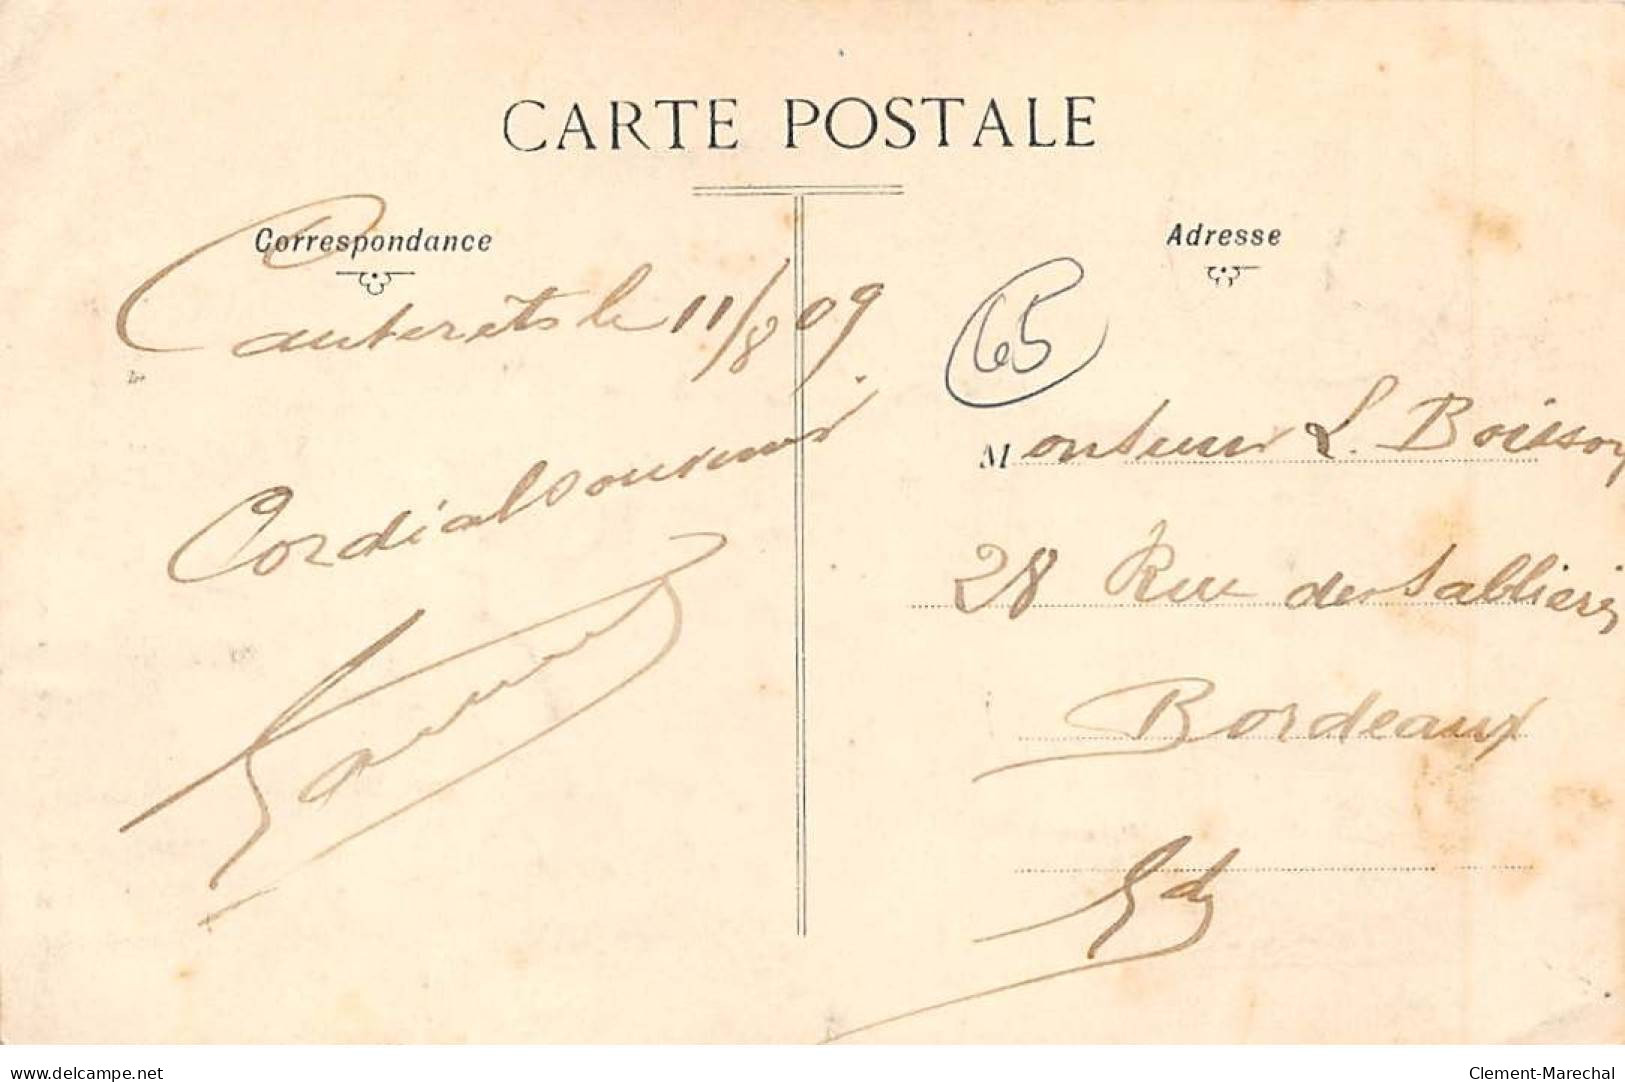 CARTE POSTALE
Correspondance
Cauterets le 11/8 09.
Cordial souvenir
Adresse
65
Monsieur L. Boisson
28 Rue des Sablières
Bordeaux
delcampe.net
Clement-Marechal